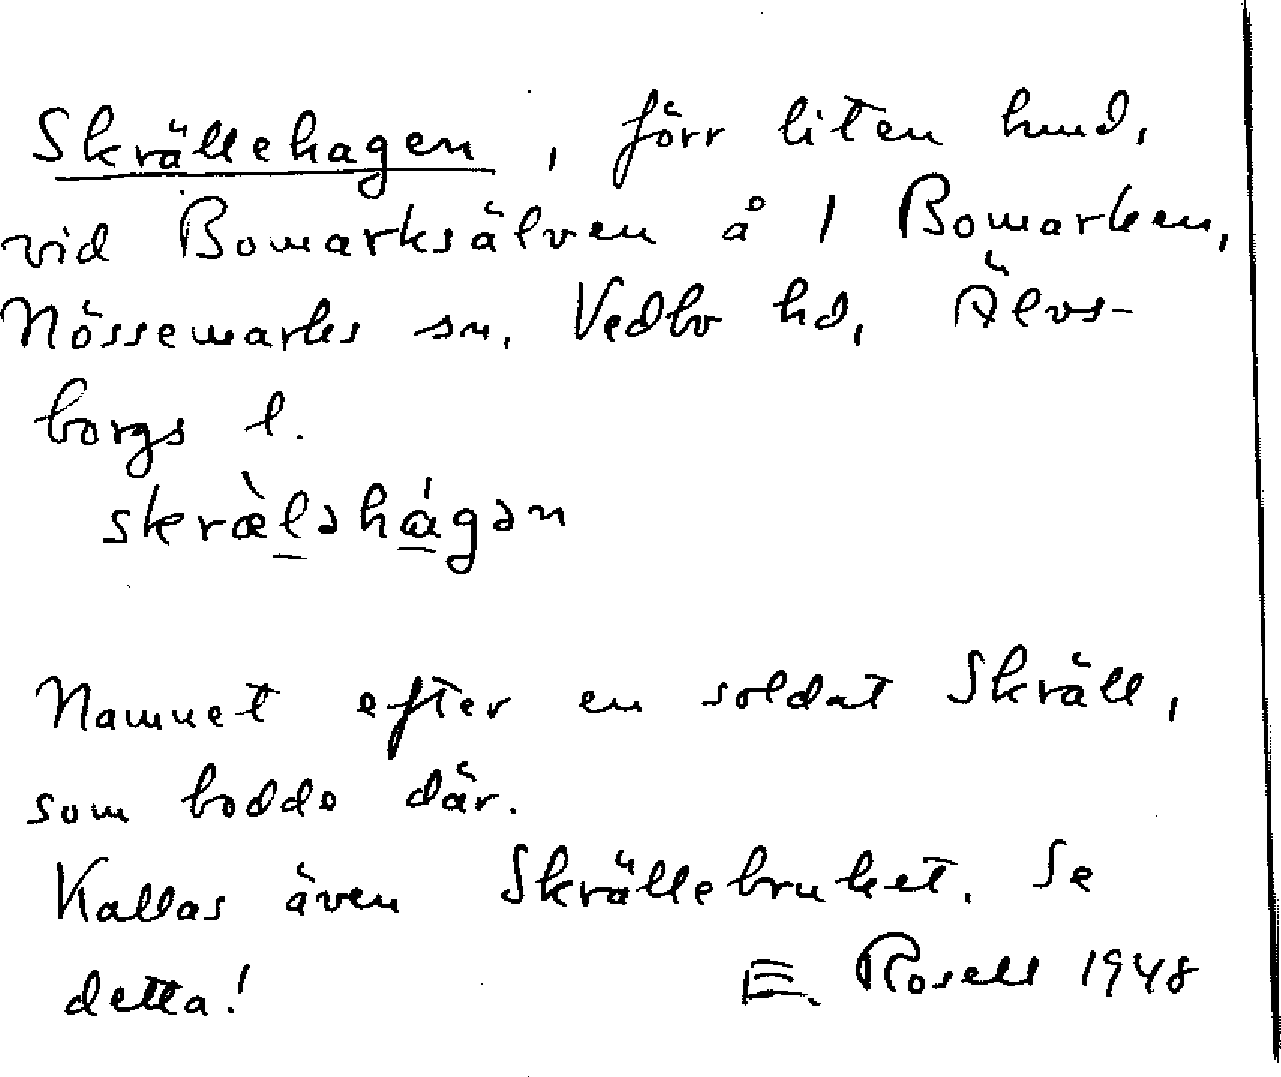 Skrällehagen, förr liten hmd,
vid Bomarksälven å 1 Bomarken,
Nössemarks sn, Vedbo hd, Älvs-
borgs l.
skræ̀ləhágən
Namnet efter en soldat Skräll,
som bodde där.
Kallas även Skrällebruket. Se
detta! E. Rosell 1948